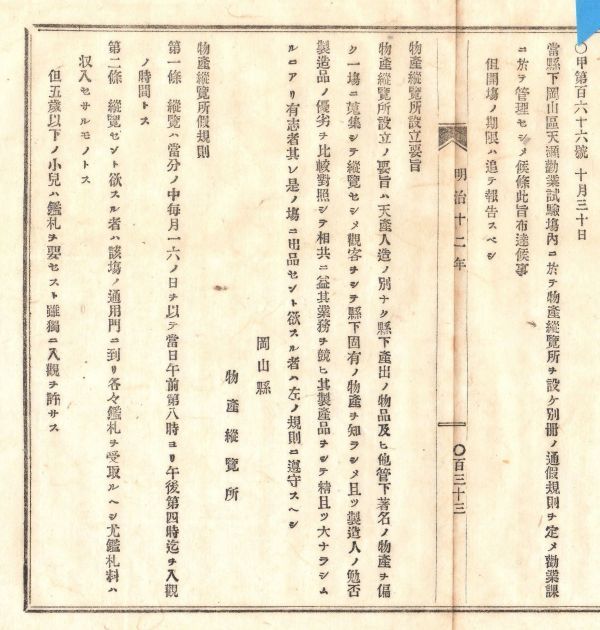 〇甲第百六十六號 十月三十日
當縣下岡山區天瀬勸業試驗塲內ニ於テ物產縱覽所ヲ設ケ別冊ノ通假規則ヲ定メ勸業課
ニ於テ管理セシメ候條此旨布達候事
但開塲ノ期限ハ追テ報告スベシ
明治十二年
〇百三十三
物產縱覽所設立要旨
物產縱覽所設立ノ要旨ハ天產人造ノ別ナク縣下產出ノ物品及ヒ他管下著名ノ物產ヲ偏
ク一塲ニ蒐集シテ縱覽セシメ觀客ヲシテ縣下固有ノ物產ヲ知ラシメ且ツ製造人ノ勉否
製造品ノ優劣ヲ比較對照シテ相共ニ益其業務ヲ競ヒ其製產品ヲシテ精且ツ大ナラシム
ルコアリ有志者其レ是ノ塲ニ出品セント欲スル者ハ左ノ規則ニ遵守スヘシ
岡山縣
物產縱覽所
物產縱覽所假規則
第一條 縱覽ハ當分ノ中每月一六ノ日ヲ以テ當日午前第八時ヨリ午後第四時迄ヲ入觀
ノ時間トス
第二條 縱覽セント欲スル者ハ該塲ノ通用門ニ到リ各々鑑札ヲ受取ルヘシ尤鑑札料ハ
収入セサルモノトス
但五歲以下ノ小兒ハ鑑札ヲ要セスト雖獨ニ入觀ヲ許サス